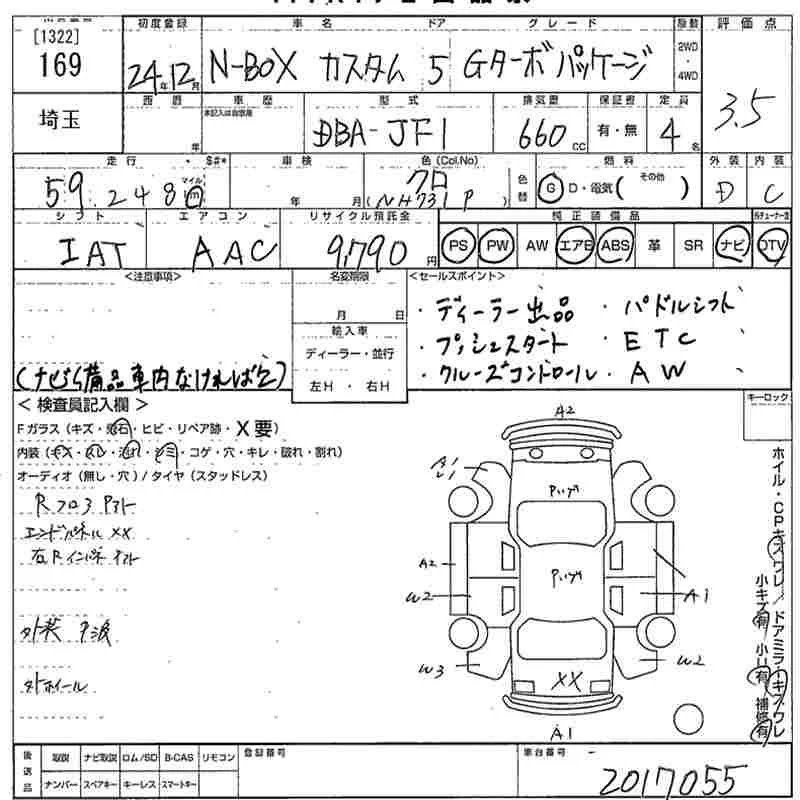 [1322]
169
初度登録
24年12月
車名
N-BOX カスタム
ドア
5
グレード
Gターボ パッケージ
駆動
2WD
・
4WD
評価点
3.5
埼玉
西暦
年
車歴
型式
DBA-JF1
排気量
660cc
保証書
有・無
定員
4名
走行
59,248
マイル
km
S#*
車検
年 月
色(Col.No)
クロ
(NH731P)
色替
燃料
G D・電気( その他 )
外装
D
内装
C
シフト
IAT
エアコン
AAC
リサイクル預託金
9,790円
純正装備品
PS PW AW エアB ABS 革 SR ナビ DTV
<注意事項>
(ナビ、備品車内なければ欠)
名変期限
月 日
輸入車
ディーラー・並行
左H ・ 右H
<セールスポイント>
・ディーラー出品 ・パドルシフト
・プッシュスタート ・ETC
・クルーズコントロール ・AW
<検査員記入欄>
Fガラス(キズ・飛石・ヒビ・リペア跡・X要)
内装(キズ・スレ・汚れ・シミ・コゲ・穴・キレ・破れ・割れ)
オーディオ(無し・穴)/タイヤ(スタッドレス)
Rフロア アト
エンドパネル XX
右Rインパネ アト
外装 夕波
外ホイール
キーロック
A2
A1
Pハゲ
Pハゲ
A2
W2
A1
W3
W2
XX
A1
ホイル・CPキズワレ/ドアミラーキズワレ
小キズ有 小U有/補修有
後送品
取説 ナビ取説 ロム/SD B-CAS リモコン
ナンバー スペアキー キーレス スマートキー
登録番号
車台番号
2017055